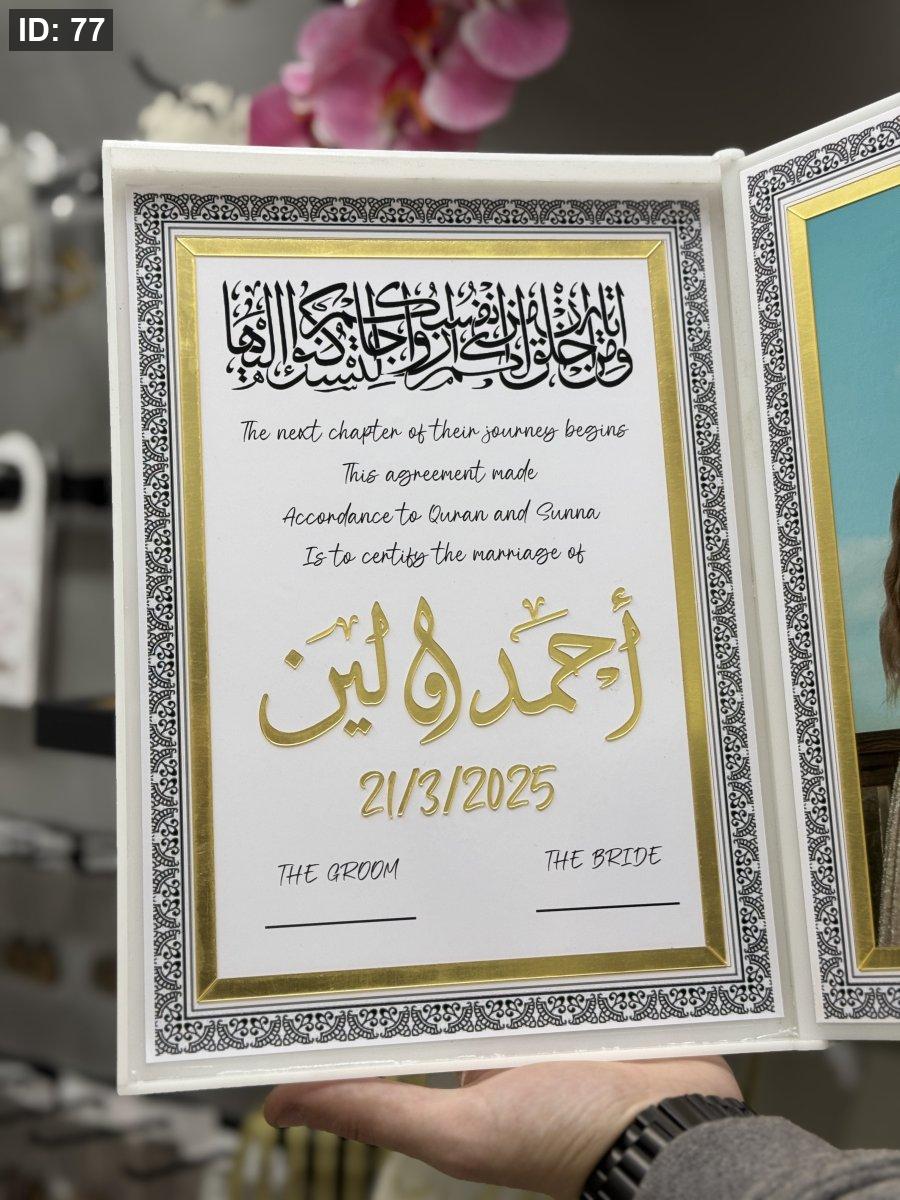 ID: 77
ومن آياته أن خلق لكم من أنفسكم أزواجا لتسكنوا إليها
The next chapter of their journey begins
This agreement made
Accordance to Quran and Sunna
Is to certify the marriage of
أحمد و لين
21/3/2025
THE GROOM
THE BRIDE